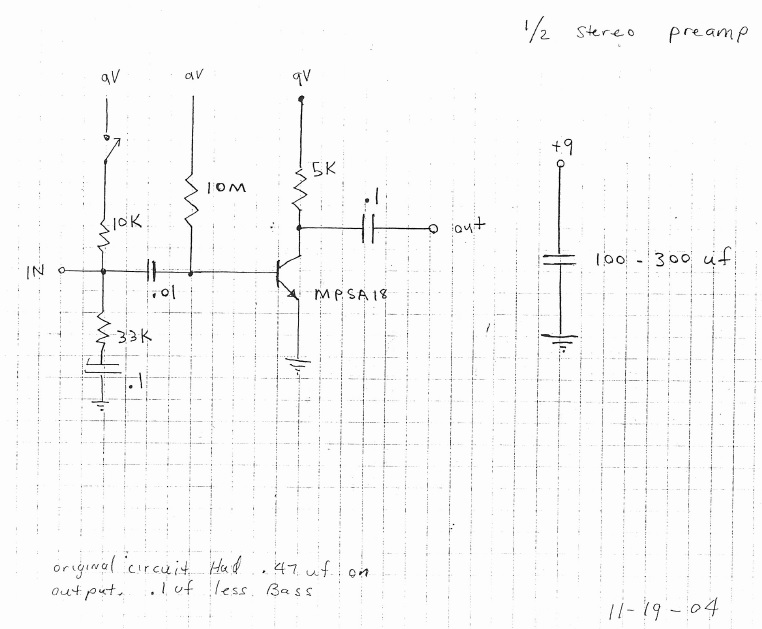 1/2 stereo preamp
9V 9V 9V
+9
5K
10M
.1
10K
out
IN
100 - 300 uf
.01
MPSA18
33K
.1
original circuit Had .47 uf on
output. .1 uf less Bass
11-19-04